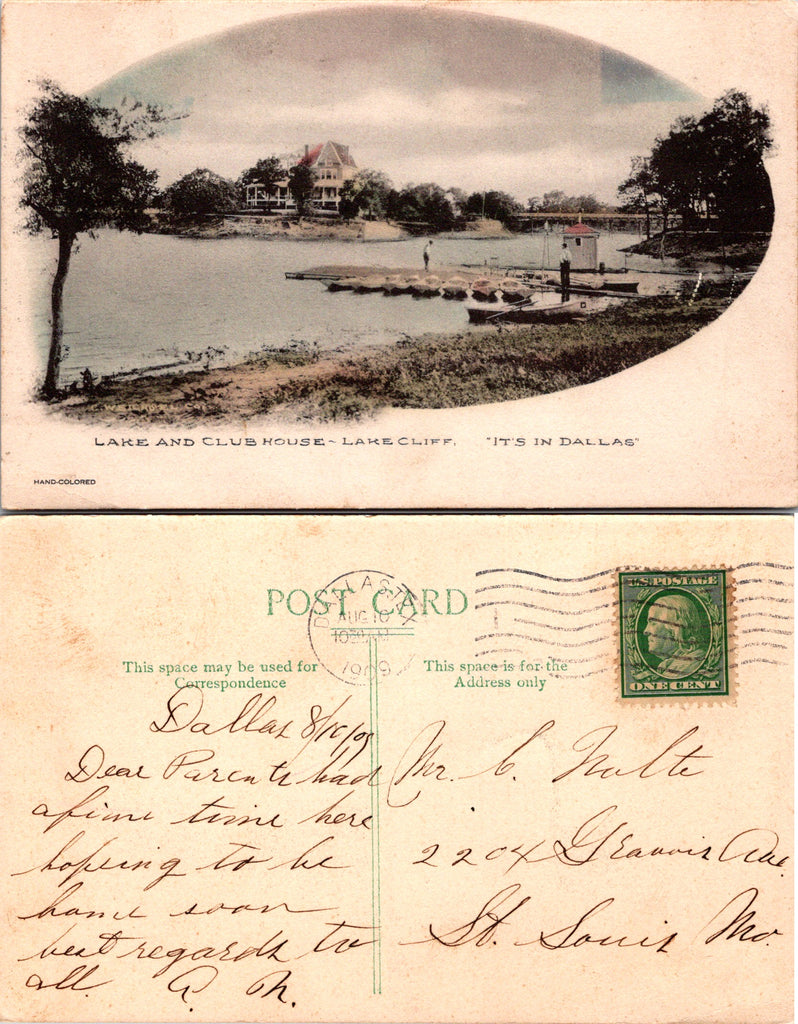 LAKE AND CLUB HOUSE~LAKE CLIFF. "IT'S IN DALLAS"
HAND-COLORED
POST CARD
DALLAS, TEX
AUG 10
1909
U.S. POSTAGE
ONE CENT
This space may be used for
Correspondence
This space is for the
Address only
Dallas 8/10/09
Dear Parents had
a fine time here
hopeing to be
home soon
best regards to
all. A. N.
Mr. C. Nolte
2204 Gravois Ave.
St. Louis Mo.